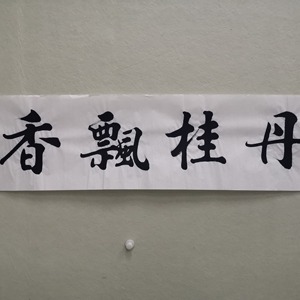 丹桂飄香